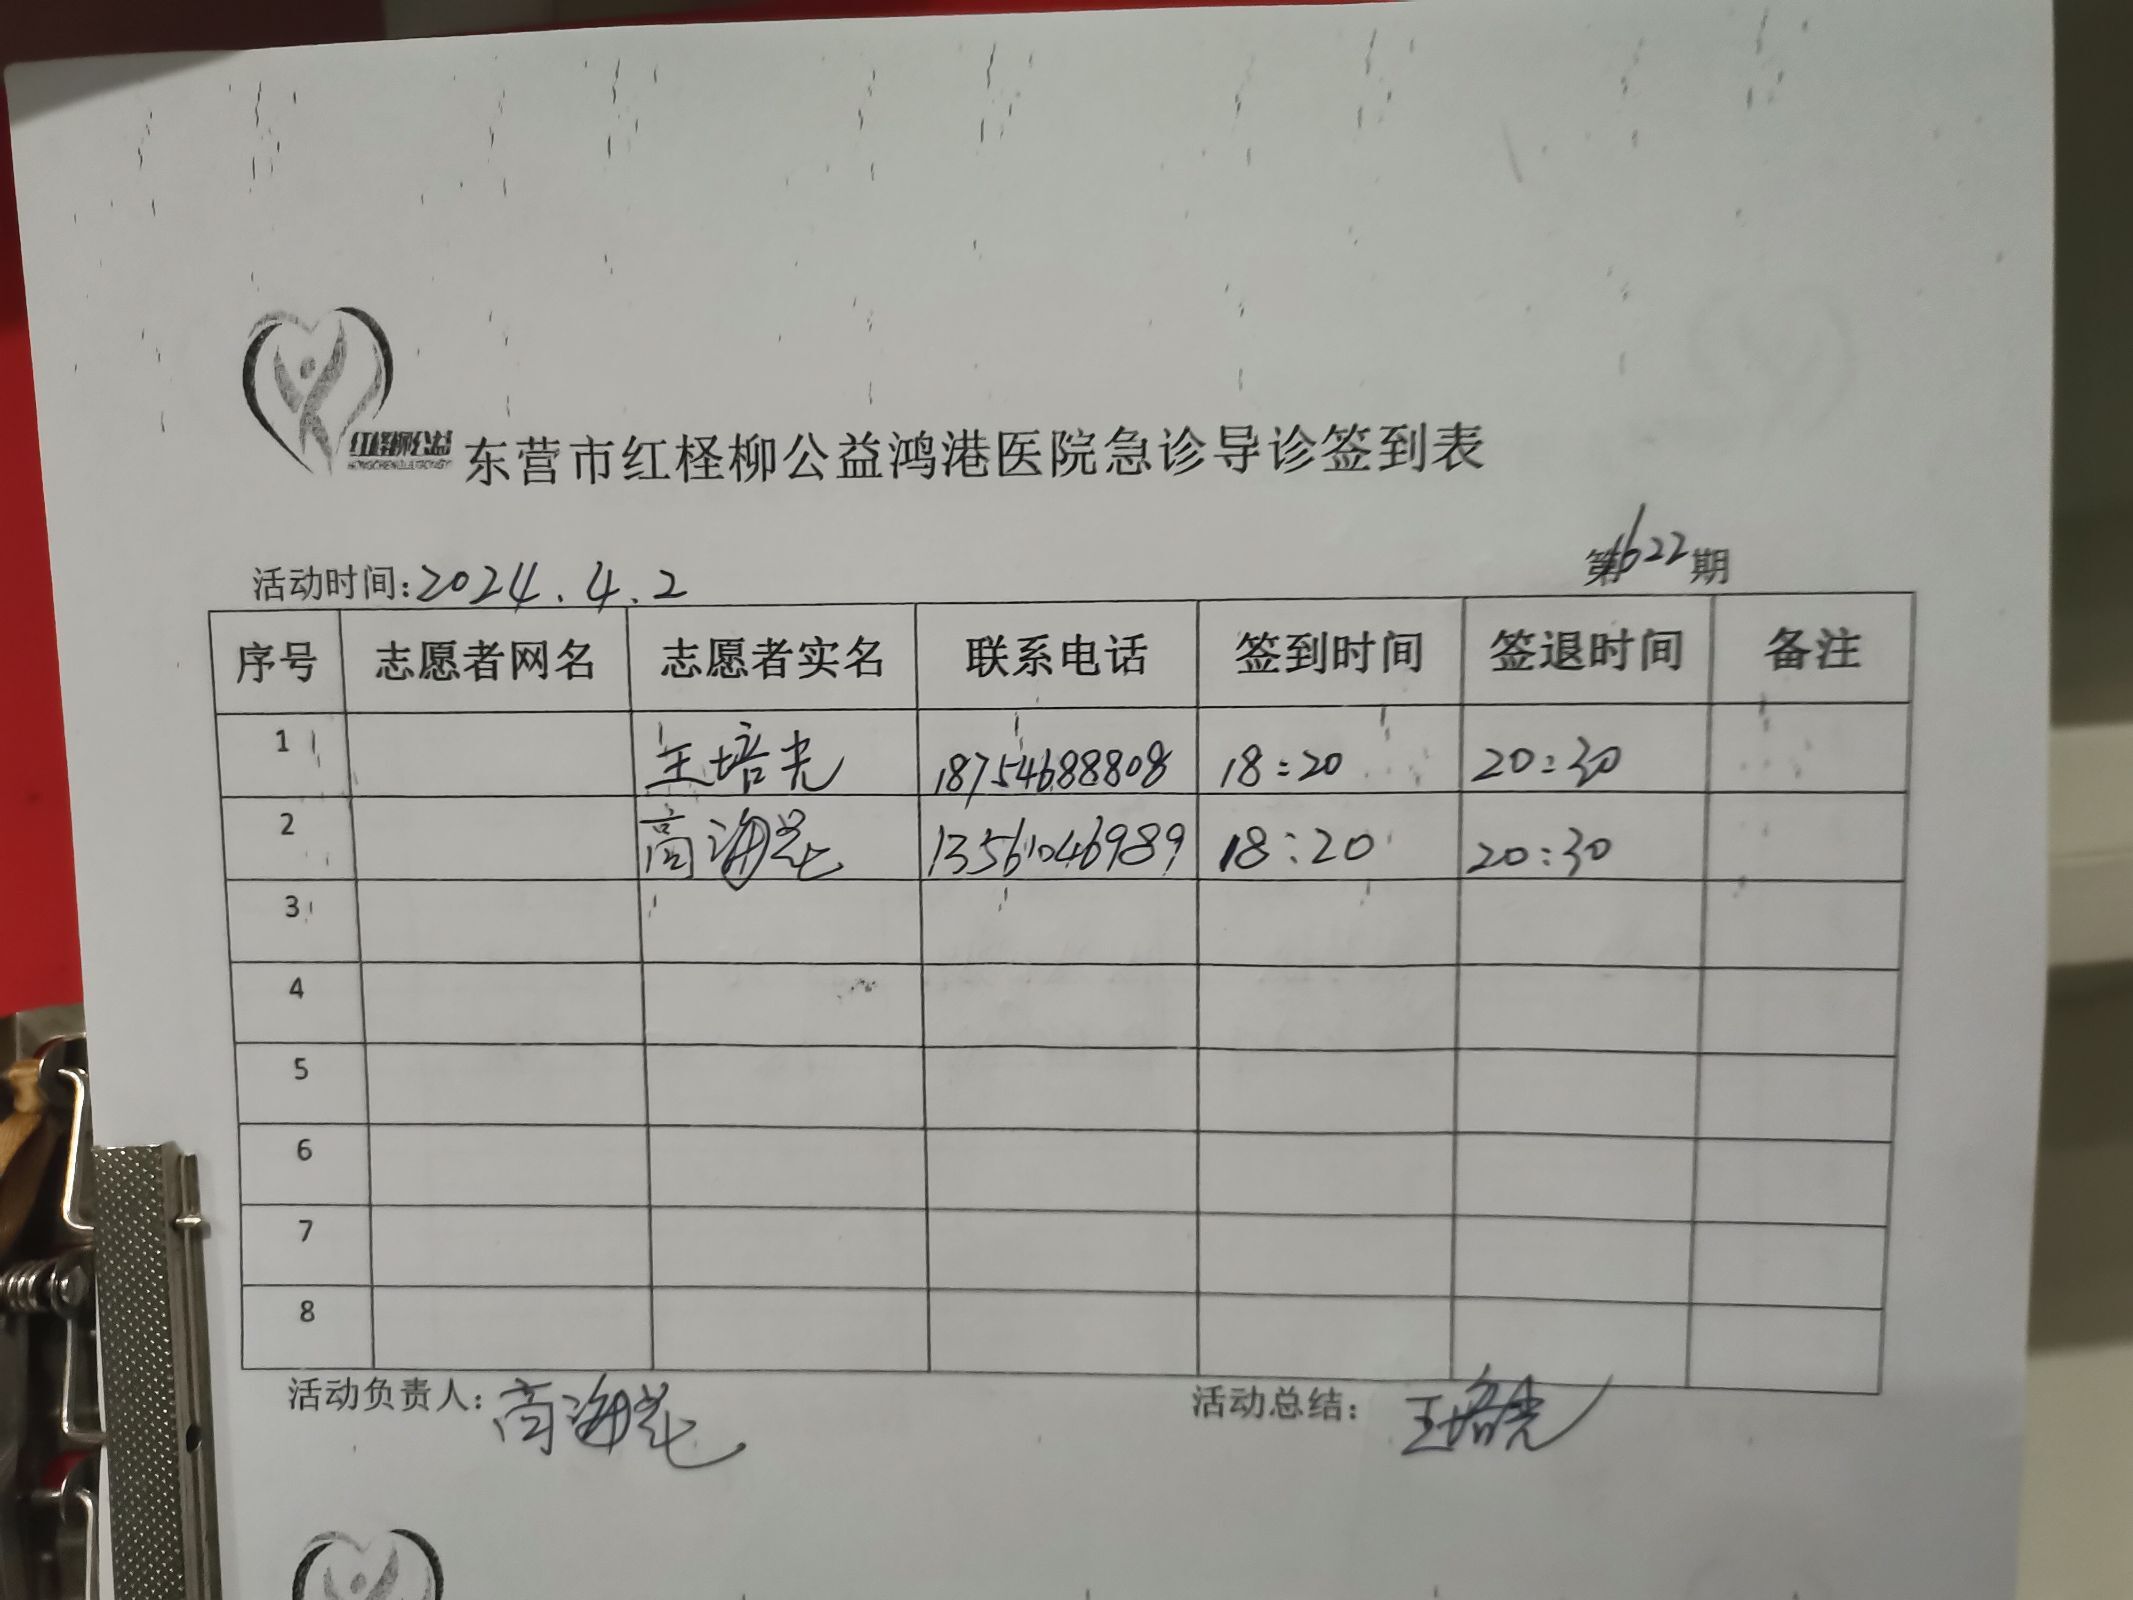 红柽柳公益
东营市红柽柳公益鸿港医院急诊导诊签到表
活动时间:2024.4.2 第1622期
序号 志愿者网名 志愿者实名 联系电话 签到时间 签退时间 备注
1 王培光 18754688808 18:20 20:30
2 高海花 13561046989 18:20 20:30
3
4
5
6
7
8
活动负责人:高海花 活动总结:王培光